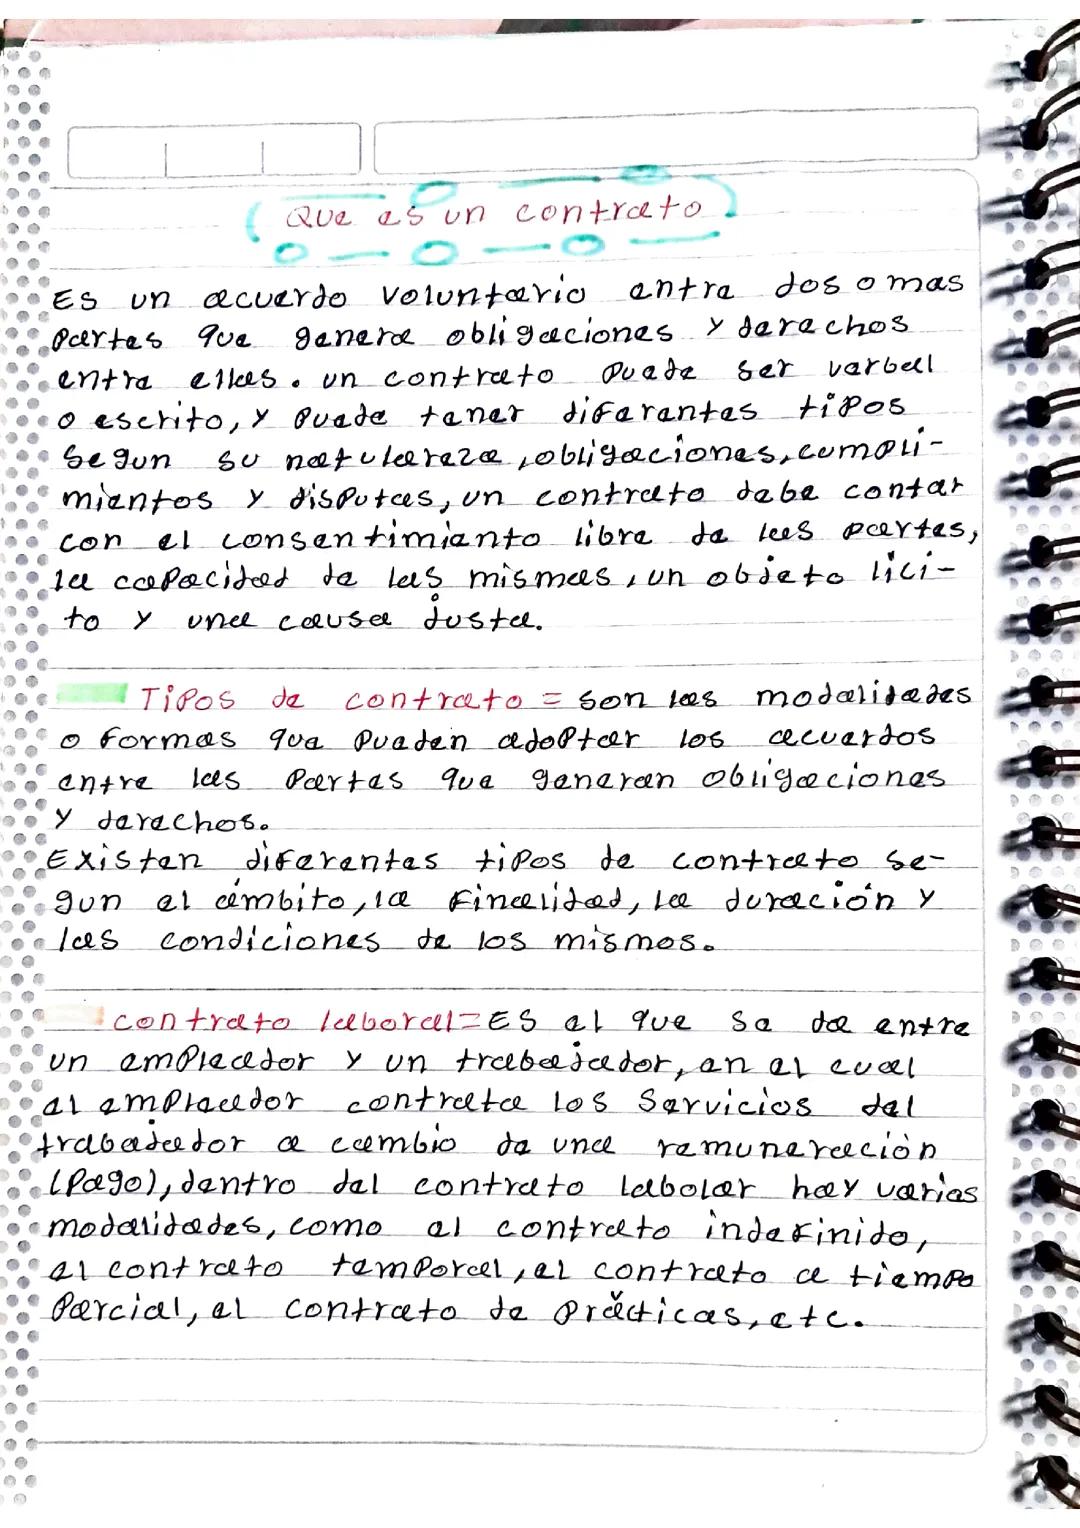 Que es un contrato
Es un acuerdo voluntario entre dos o mas
partes que genera obligaciones y derechos
entre ellas. un contrato puede ser verbal
o escrito, y puede tener diferentes tipos
segun su naturaleza, obligaciones, cumpli-
mientos y disputas, un contrato debe contar
con el consentimiento libre de las partes,
la capacidad de las mismas, un objeto lici-
to y una causa justa.
Tipos de contrato = son las modalidades
o formas que pueden adoptar los acuerdos
entre las partes que generan obligaciones
y derechos.
Existen diferentes tipos de contrato se-
gun el ámbito, la finalidad, la duración y
las condiciones de los mismos.
contrato laboral = Es el que se da entre
un empleador y un trabajador, en el cual
el empleador contrata los servicios del
trabajador a cambio de una remuneración
(pago), dentro del contrato labolar hay varias
modalidades, como el contrato indefinido,
el contrato temporal, el contrato a tiempo
parcial, el contrato de prácticas, etc.